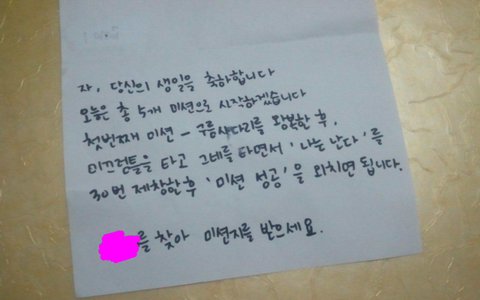 자, 당신의 생일을 축하합니다
오늘은 총 5개 미션으로 시작하겠습니다
첫번째 미션 - 구름사다리를 왕복한 후,
미끄럼틀을 타고 그네를 타면서 '나는 난다'를
30번 제창한 후 '미션 성공'을 외치면 됩니다.
를 찾아 미션지를 받으세요.